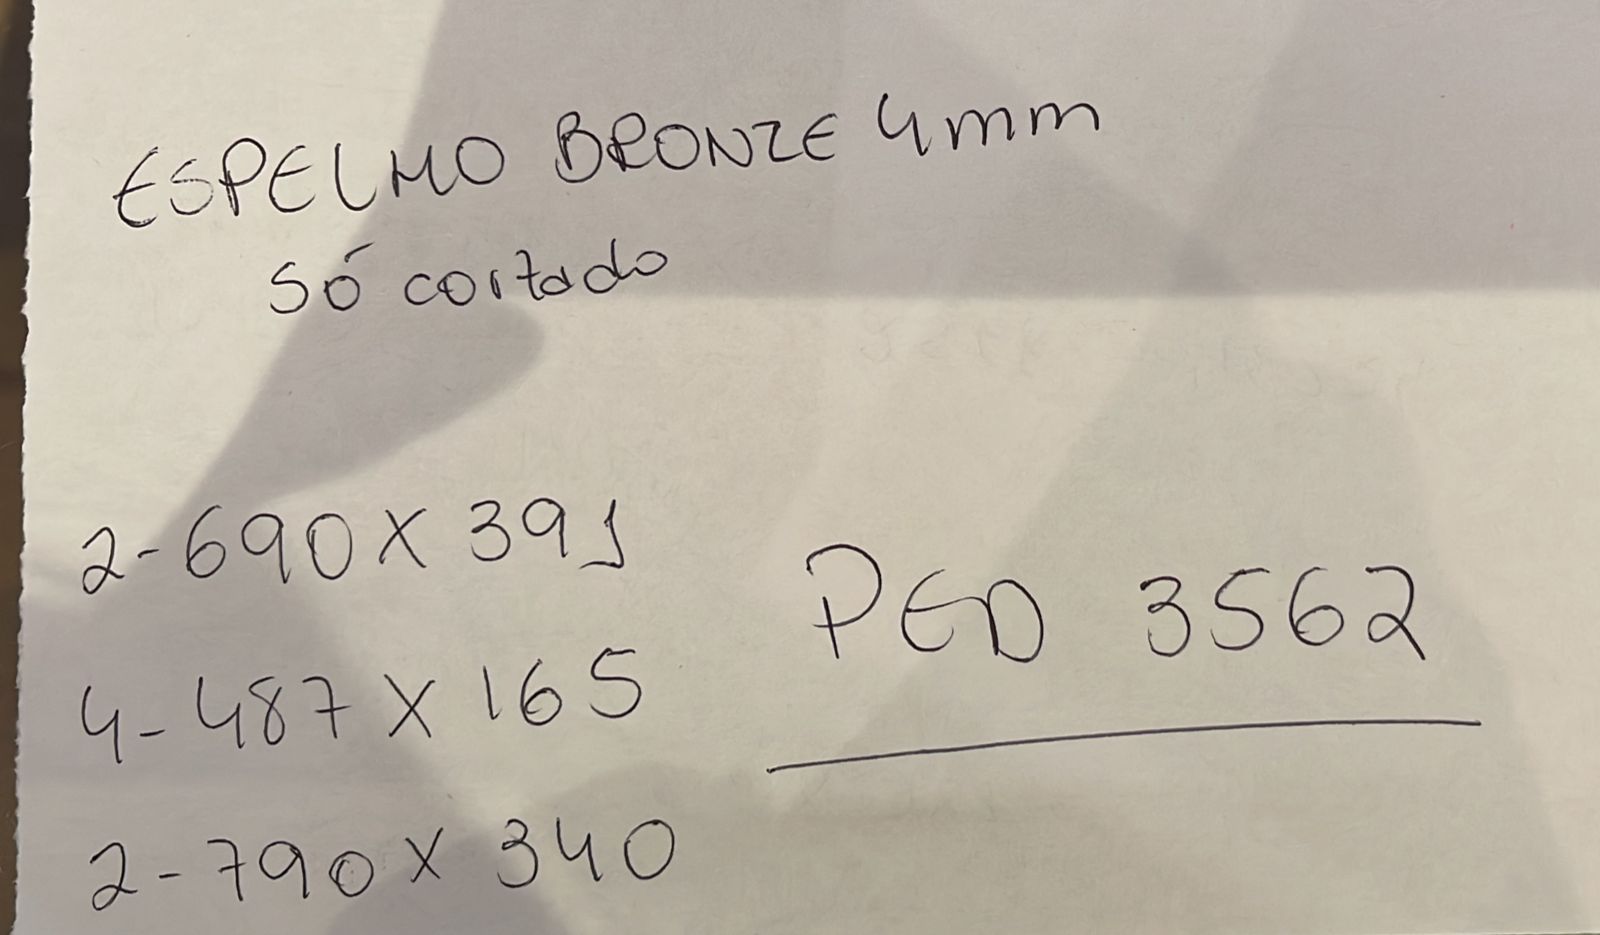 ESPELHO BRONZE 4mm
Só cortado
2-690 X 391
4-487 X 165
2-790 X 340
PED 3562